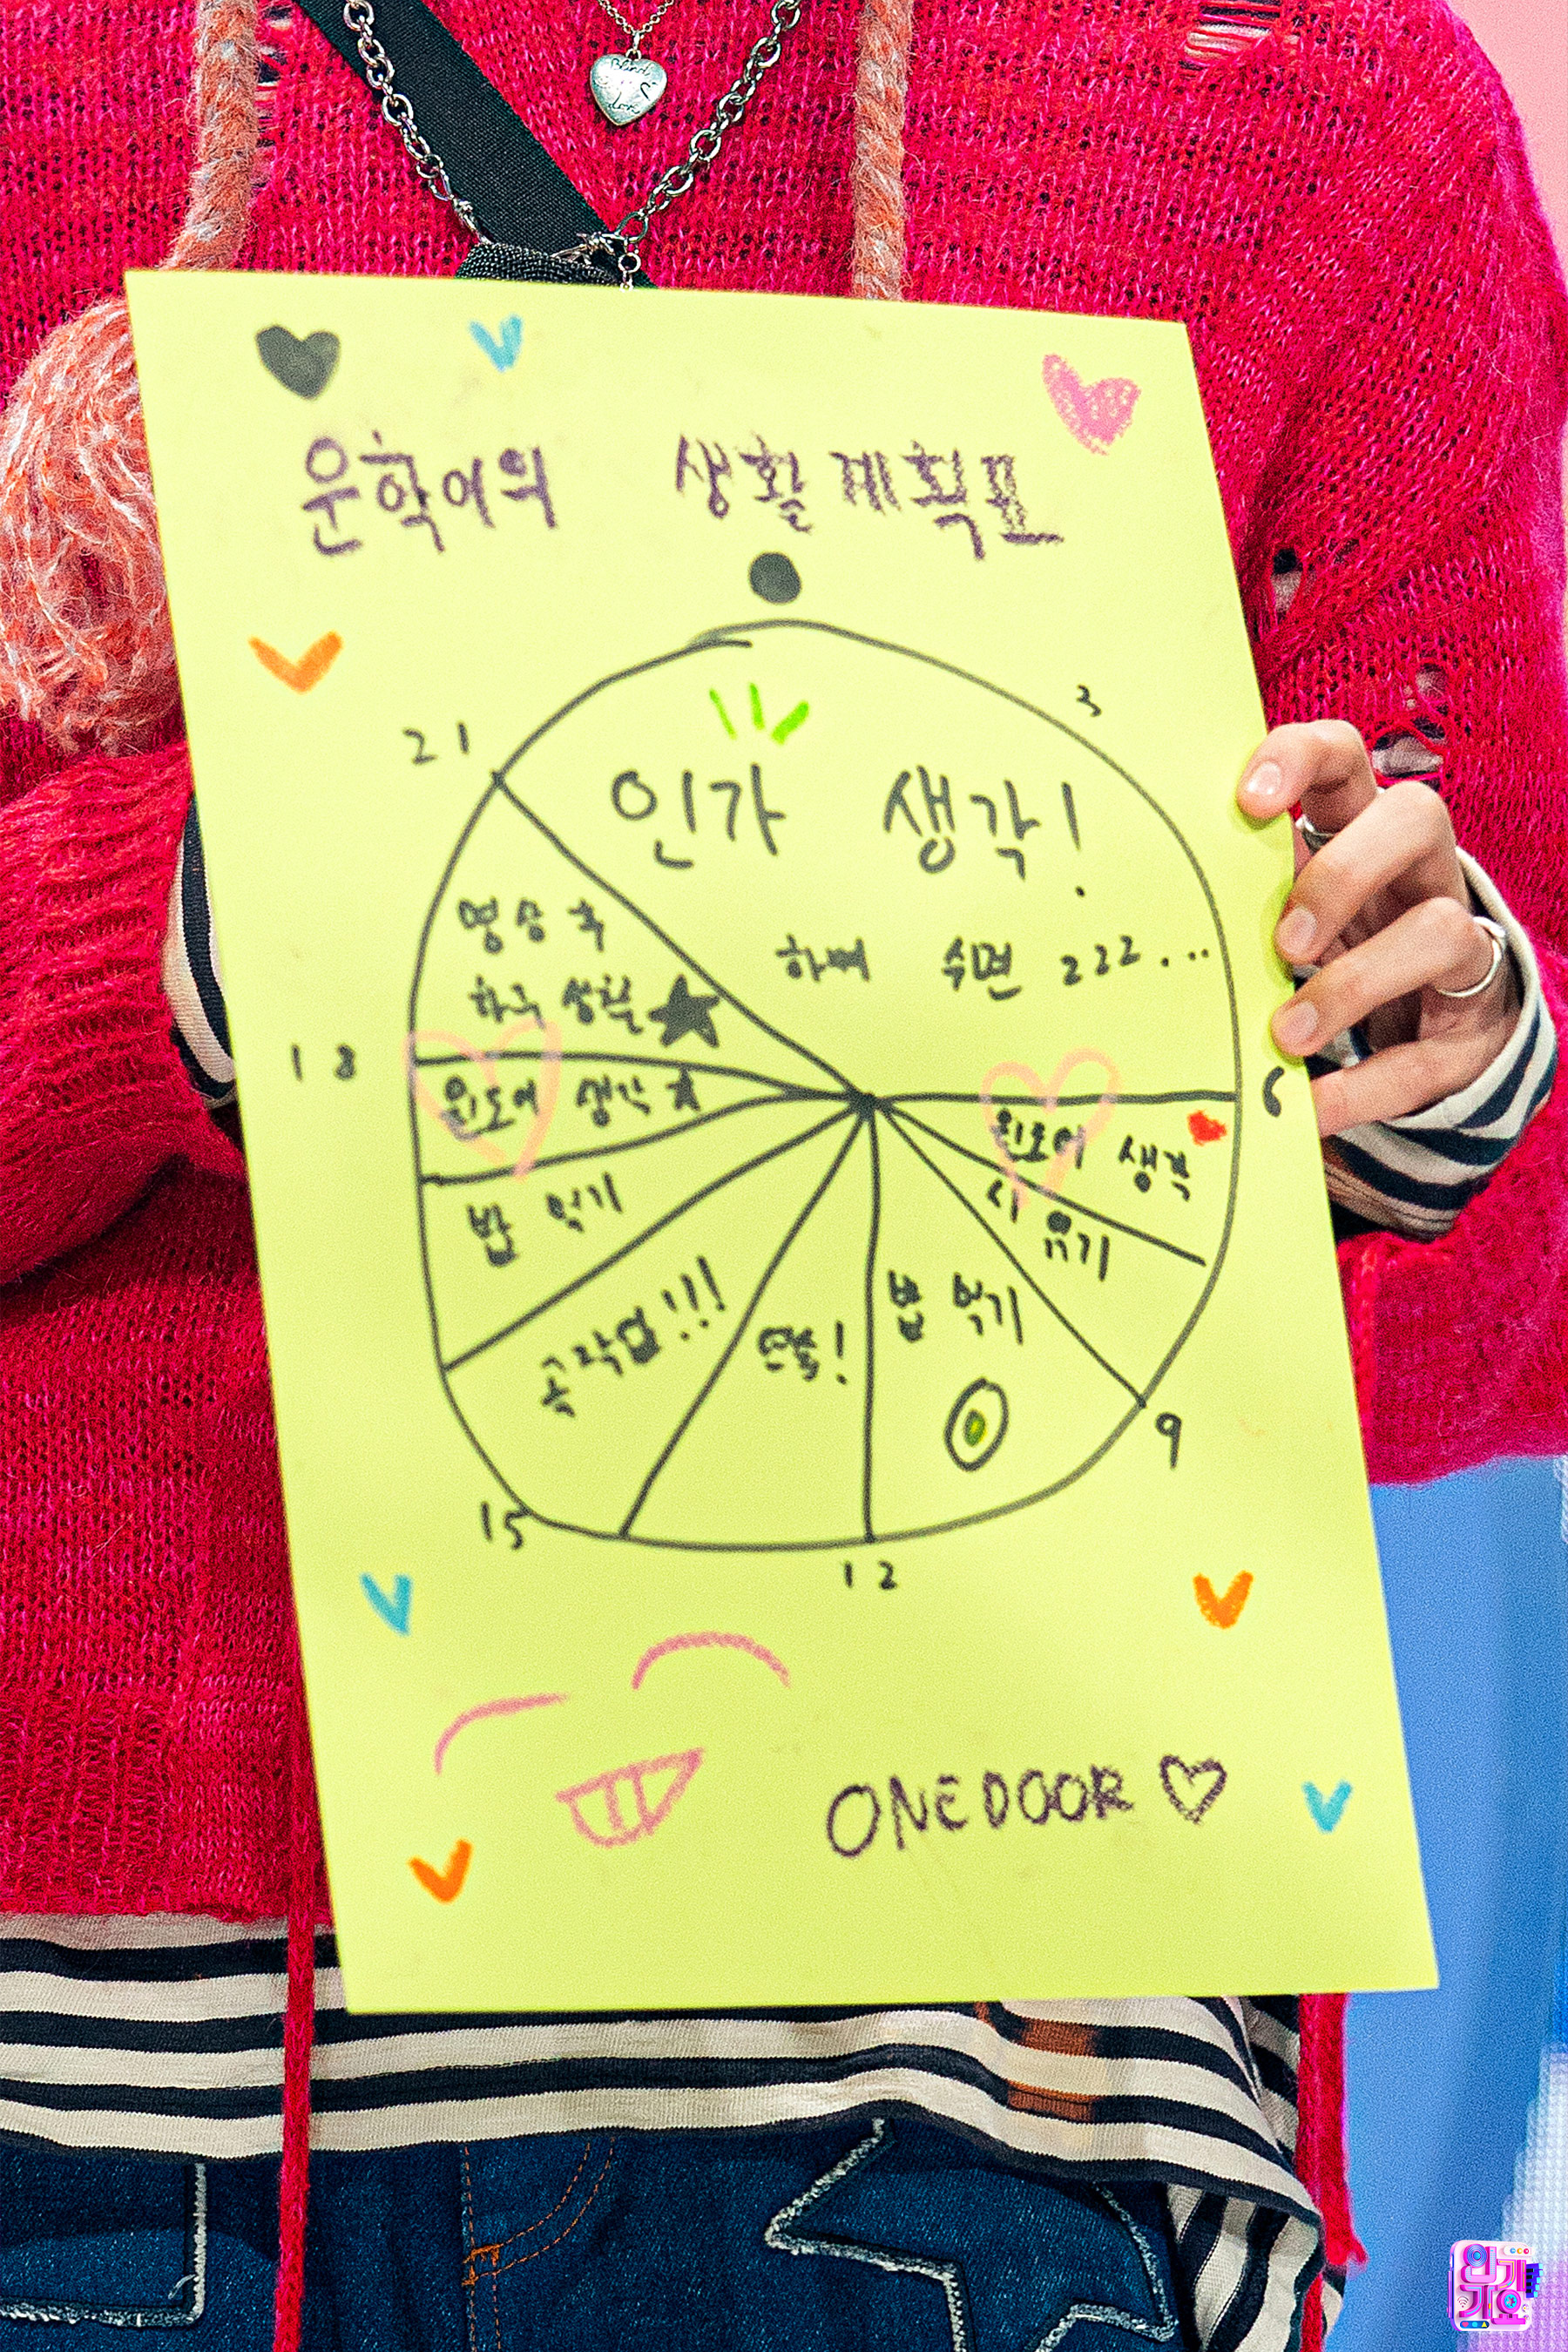 Blind
for
love
운학이의 생활계획표
3
21
인가 생각!
하며 수면 zzz...
명상 후
하루 생활
18
원도어 생각
6
원도어 생각
시 유기
밥 먹기
밥 먹기
곡작업!!!
연습!
9
15
12
ONEDOOR
인기
가요